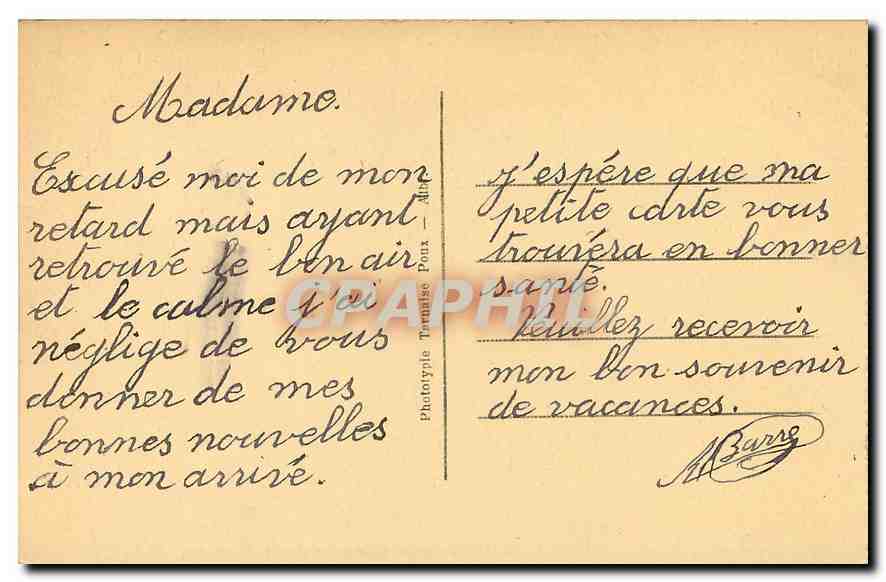 Madame.
Excusé moi de mon
retard mais ayant
retrouvé le bon air
et le calme j'ai
néglige de vous
donner de mes
bonnes nouvelles
à mon arrivé.
Phototypie Tarnaise Poux — Albi
CPAPHIL
j'espére que ma
petite carte vous
trouvéra en bonner
santé.
Veuillez recevoir
mon bon souvenir
de vacances.
Barre